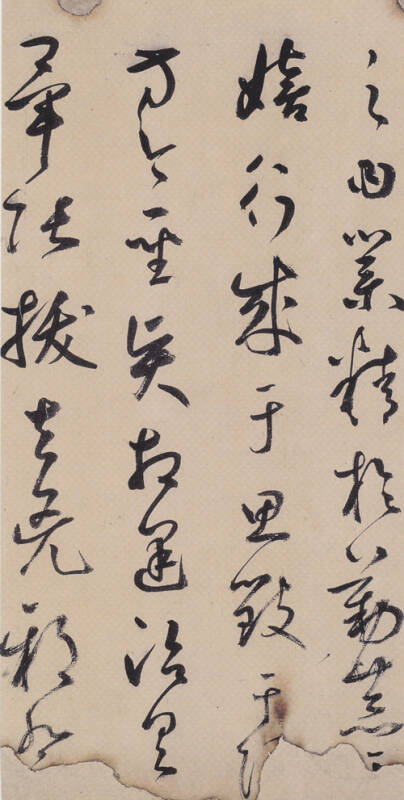 之曰業精於勤荒
嬉行成于思毀于
方今聖賢相逢治具
畢張拔去兇邪